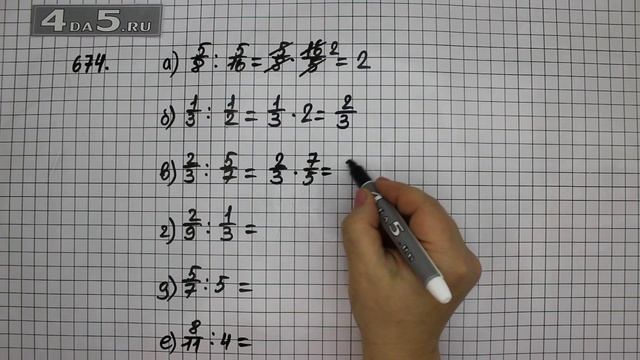 4DA5.RU
674. а) 5/8 : 5/16 = 5/8 · 16/5 2 = 2
б) 1/3 : 1/2 = 1/3 · 2 = 2/3
в) 2/3 : 5/7 = 2/3 · 7/5 =
г) 2/9 : 1/3 =
д) 5/7 : 5 =
е) 8/11 : 4 =
4DA5.RU